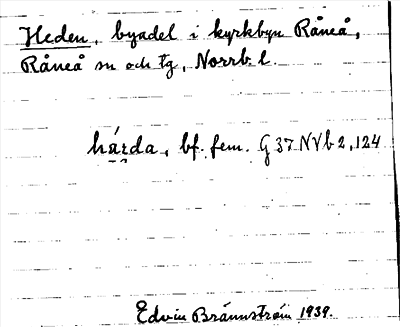 Heden, byadel i kyrkbyn Råneå,
Råneå sn och tg, Norrb. l.
bf. fem. G 37 NVb 2, 124
Edvin Brännström 1939.